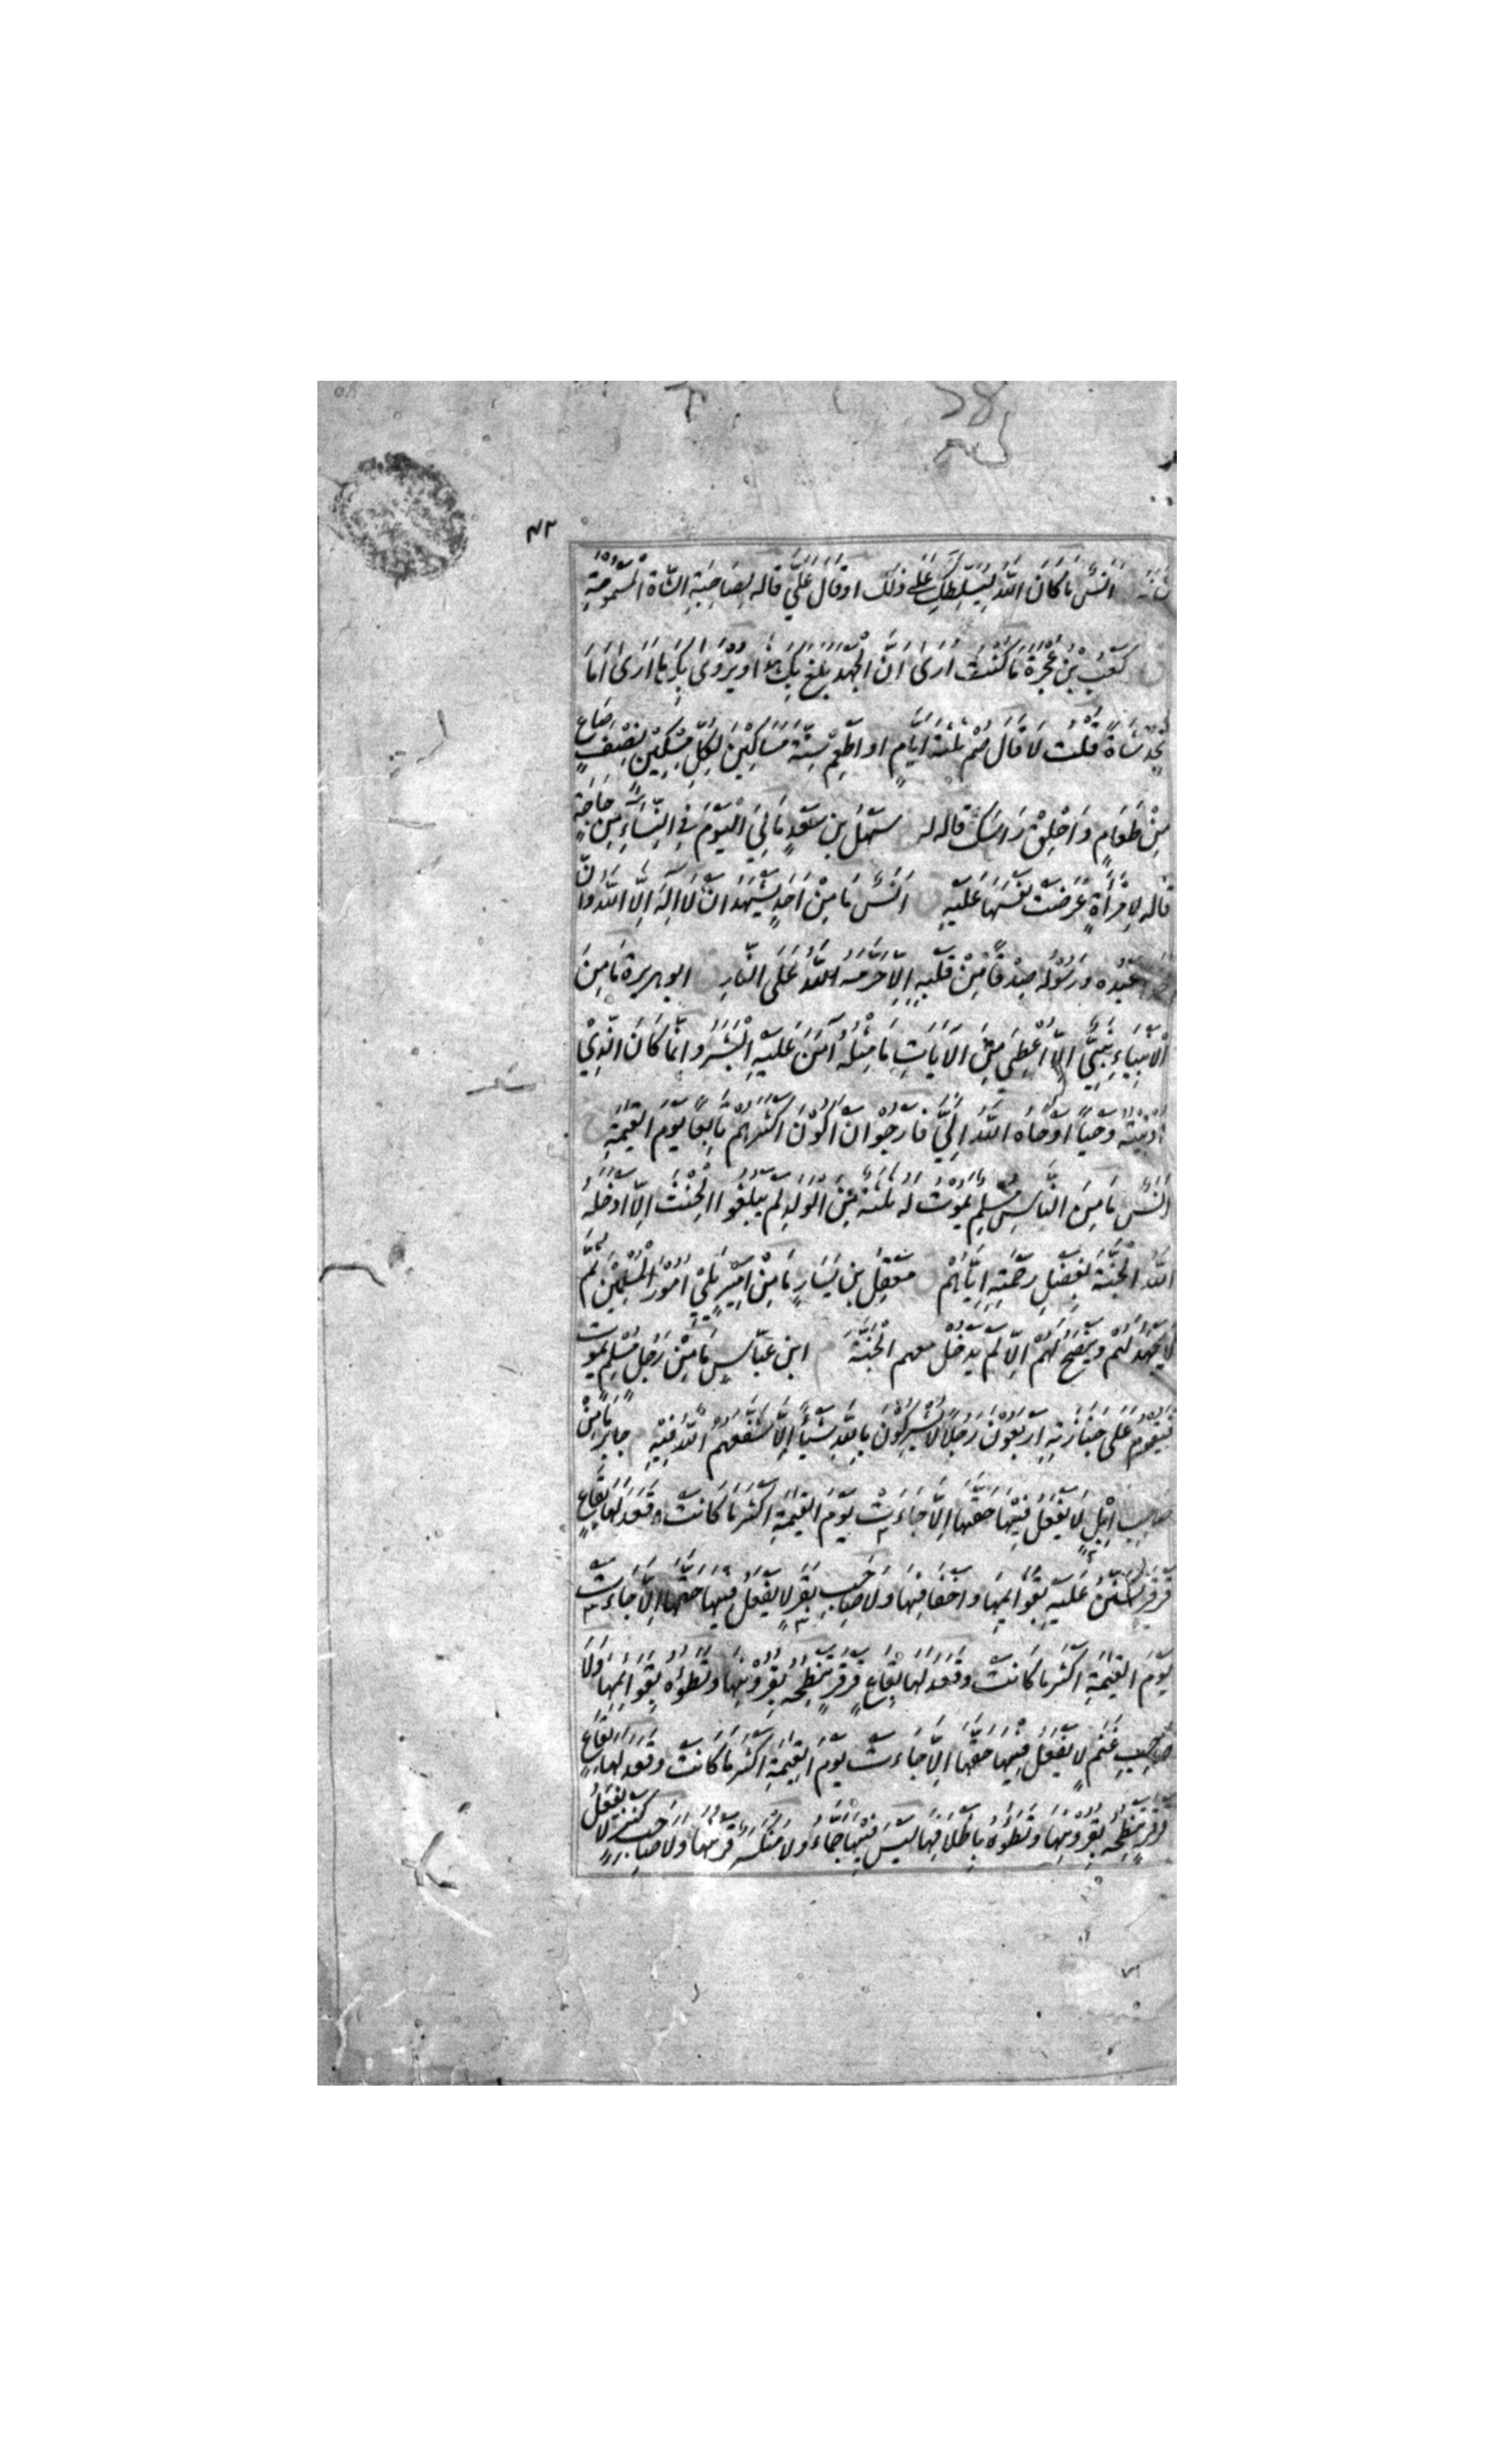 ٤٣
اَنَسٌ مَا كَانَ اللّٰهُ لِيُسَلِّطَكِ عَلٰى ذٰلِكَ اوقَالَ عَلَيَّ قاله لِصَاحِبَةِ الشَّاةِ الْمَسْمُومَةِ
كَعْبُ بْنُ عُجْرَةَ مَا كُنْتُ اُرٰى اَنَّ الْجَهْدَ بَلَغَ بِكَ هٰذَا ويُرْوٰى بِكَ مَا اَرٰى اَمَا
تَجِدُ شَاةً قُلْتُ لَا قَالَ صُمْ ثَلٰثَةَ اَيَّامٍ او اَطْعِمْ سِتَّةَ مَسَاكِيْنَ لِكُلِّ مِسْكِيْنٍ نِصْفُ صَاعٍ
مِنْ طَعَامٍ وَاحْلِقْ رَاْسَكَ قاله له سَهْلُ بن سَعْدٍ مَا لِيَ الْيَوْمَ فِي النِّسَاءِ مِنْ حَاجَةٍ
قاله لِامْرَأَةٍ عَرَضَتْ نَفْسَهَا عَلَيْهِ اَنَسٌ مَا مِنْ اَحَدٍ يَشْهَدُ اَنْ لَا اِلٰهَ اِلَّا اللّٰهُ وَاَنَّ
عَبْدُهُ وَرَسُوْلُهُ صِدْقًا مِنْ قَلْبِهِ اِلَّا حَرَّمَهُ اللّٰهُ عَلَى النَّارِ ابوهريرة مَا مِنَ
الْاَنْبِيَاءِ نَبِيٌّ اِلَّا اُعْطِيَ مِنَ الْاٰيَاتِ مَا مِثْلُهُ اٰمَنَ عَلَيْهِ الْبَشَرُ وَاِنَّمَا كَانَ الَّذِيْ
اُوْتِيْتُهُ وَحْيًا اَوْحَاهُ اللّٰهُ اِلَيَّ فَاَرْجُوْ اَنْ اَكُوْنَ اَكْثَرَهُمْ تَابِعًا يَوْمَ الْقِيٰمَةِ
اَنَسٌ مَا مِنَ النَّاسِ مُسْلِمٌ يَمُوْتُ لَهُ ثَلٰثَةٌ مِنَ الْوَلَدِ لَمْ يَبْلُغُوا الْحِنْثَ اِلَّا اَدْخَلَهُ
اللّٰهُ الْجَنَّةَ بِفَضْلِ رَحْمَتِهِ اِيَّاهُمْ مَعْقِلُ بن يَسَارٍ مَا مِنْ اَمِيْرٍ يَلِيْ اُمُوْرَ الْمُسْلِمِيْنَ ثُمَّ
لَا يَجْهَدُ لَهُمْ وَيَنْصَحُ لَهُمْ اِلَّا لَمْ يَدْخُلْ معهم الْجَنَّةَ ابن عَبَّاسٍ مَا مِنْ رَجُلٍ مُسْلِمٍ يَمُوْتُ
فَيَقُوْمُ عَلٰى جَنَازَتِهِ اَرْبَعُوْنَ رَجُلًا لَا يُشْرِكُوْنَ بِاللّٰهِ شَيْأً اِلَّا شَفَّعَهُمُ اللّٰهُ فِيْهِ جَابِرٌ مَا مِنْ
صَاحِبِ اِبِلٍ لَا يَفْعَلُ فِيْهَا حَقَّهَا اِلَّا جَاءَتْ يَوْمَ الْقِيٰمَةِ اَكْثَرَ مَا كَانَتْ وَقَعَدَ لَهَا بِقَاعٍ
قَرْقَرٍ تَسْتَنُّ عَلَيْهِ بِقَوَائِمِهَا وَاَخْفَافِهَا وَلَا صَاحِبِ بَقَرٍ لَا يَفْعَلُ فِيْهَا حَقَّهَا اِلَّا جَاءَتْ
يَوْمَ الْقِيٰمَةِ اَكْثَرَ مَا كَانَتْ وَقَعَدَ لَهَا بِقَاعٍ قَرْقَرٍ تَنْطِحُهُ بِقُرُوْنِهَا وَتَطَؤُهُ بِقَوَائِمِهَا وَلَا
صَاحِبِ غَنَمٍ لَا يَفْعَلُ فِيْهَا حَقَّهَا اِلَّا جَاءَتْ يَوْمَ الْقِيٰمَةِ اَكْثَرَ مَا كَانَتْ وَقَعَدَ لَهَا بِقَاعٍ
قَرْقَرٍ تَنْطِحُهُ بِقُرُوْنِهَا وَتَطَؤُهُ بِاَظْلَافِهَا لَيْسَ فِيْهَا جَمَّاءُ وَلَا مُنْكَسِرٌ قَرْنُهَا وَلَا صَاحِبِ كَنْزٍ لَا يَفْعَلُ